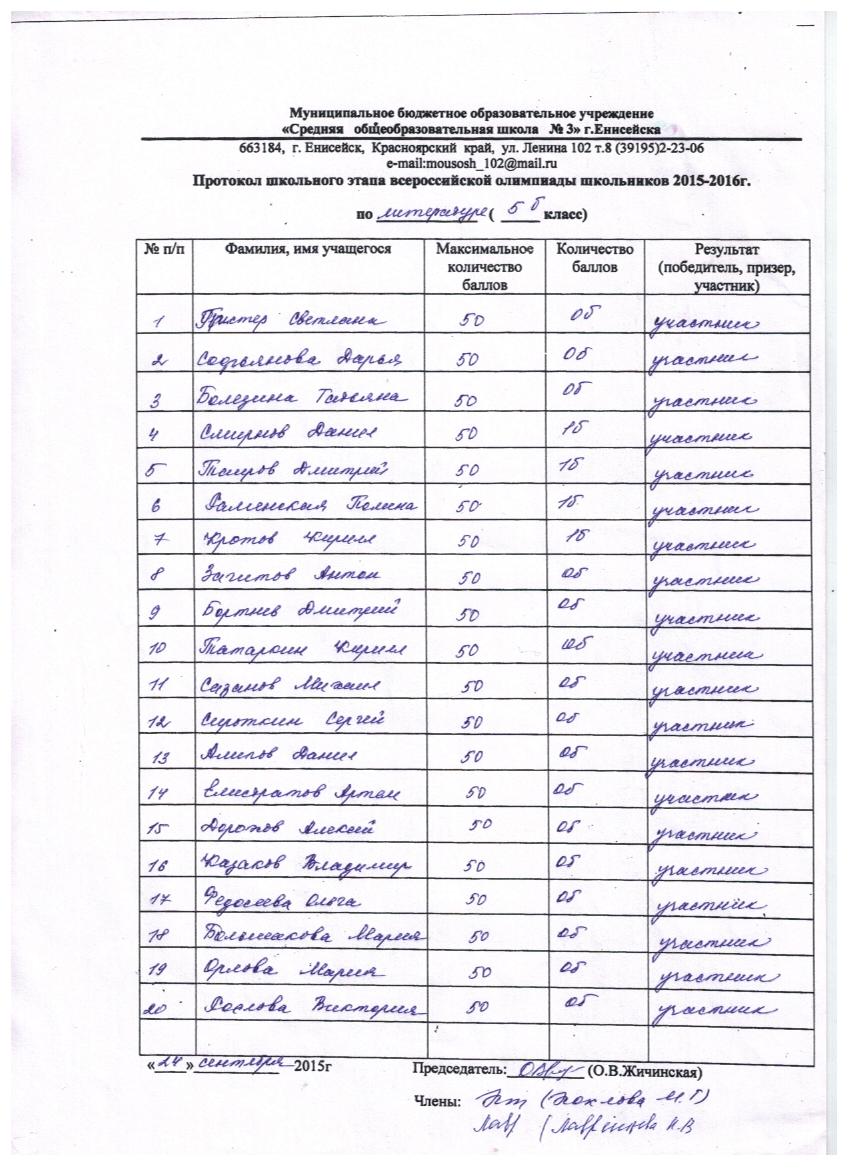 Муниципальное бюджетное образовательное учреждение
«Средняя общеобразовательная школа № 3» г.Енисейска
663184, г. Енисейск, Красноярский край, ул. Ленина 102 т.8 (39195)2-23-06
e-mail:mousosh_102@mail.ru
Протокол школьного этапа всероссийской олимпиады школьников 2015-2016г.
по литературе ( 5 б класс)
№ п/п Фамилия, имя учащегося Максимальное количество баллов Количество баллов Результат (победитель, призер, участник)
1 Пристер Светлана 50 0б участник
2 Светлана Дарья 50 0б участник
3 Болезина Татьяна 50 0б участник
4 Смирнов Данил 50 1б участник
5 Таиров Дмитрий 50 1б участник
6 Раменская Полина 50 1б участник
7 Кротов Кирилл 50 1б участник
8 Загитов Антон 50 0б участник
9 Бортнев Дмитрий 50 0б участник
10 Татаркин Кирилл 50 0б участник
11 Сазанов Михаил 50 0б участник
12 Сироткин Сергей 50 0б участник
13 Алипов Данил 50 0б участник
14 Елистратов Артем 50 0б участник
15 Дорохов Алексей 50 0б участник
16 Казаков Владимир 50 0б участник
17 Федосеева Ольга 50 0б участник
18 Большакова Мария 50 0б участник
19 Орлова Мария 50 0б участник
20 Виктория 50 0б участник
«24» сентября 2015г Председатель: (О.В.Жичинская)
Члены: (Поклова М.Г)
(Лавренцова Н.В